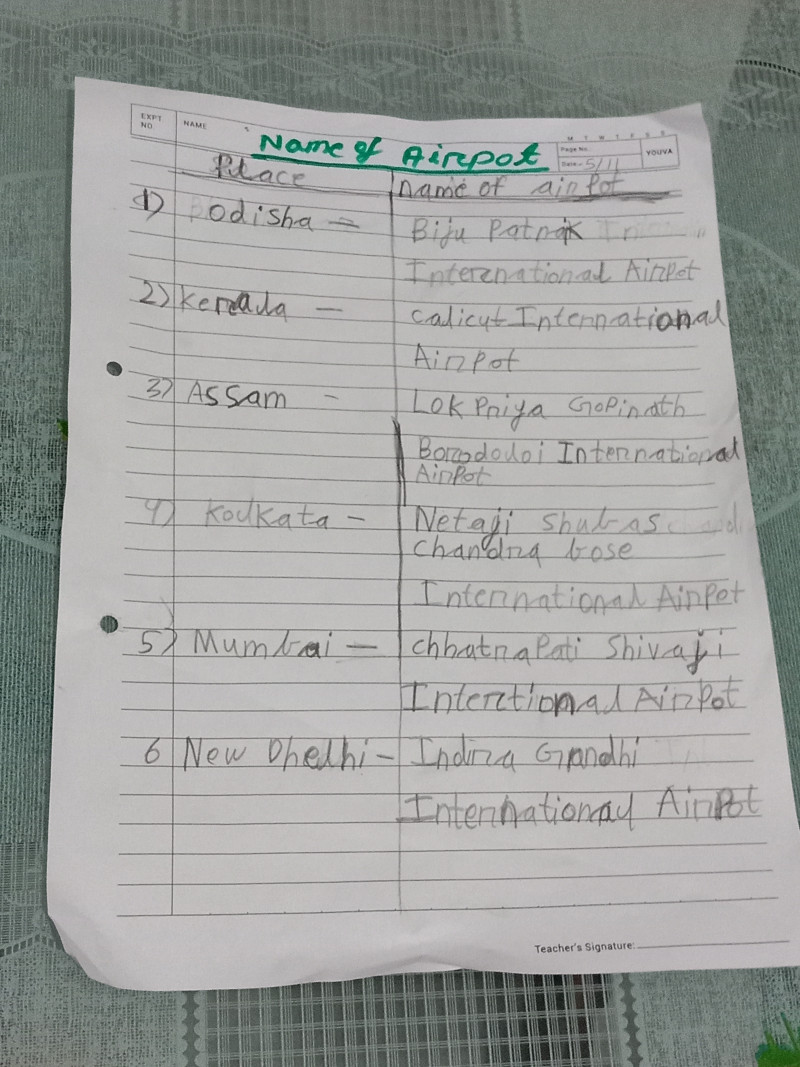 EXPT. NO.
NAME
M T W T F S S
Page No.:
Date:- 5/11
YOUVA
Name of Airpot
Place name of airpot
1) Odisha – Biju Patnaik
International Airpot
2) Kerala – Calicut International
Airpot
3) Assam – Lok Priya Gopinath
Borodoloi International
Airpot
4) Kolkata – Netaji Shubas
Chandra bose
International Airpot
5) Mumbai – Chhatrapati Shivaji
Interctional Airpot
6 New Dhelhi – Indira Gandhi
International Airpot
Teacher's Signature: